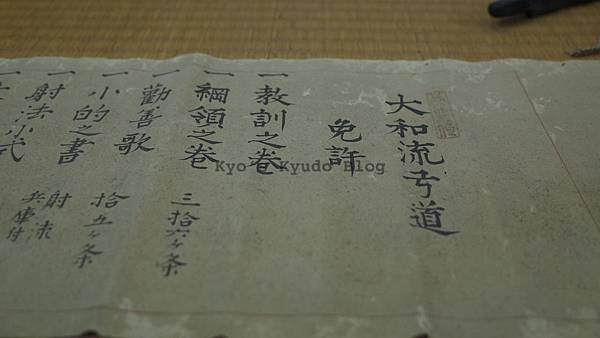 大和流弓道
免許
一教訓之巻
一綱領之巻
三拾六ヶ条
一勸善歌
一小的之書
拾五ヶ条
一射法小弐
射法
兵庫付
Kyo Kyudo Blog